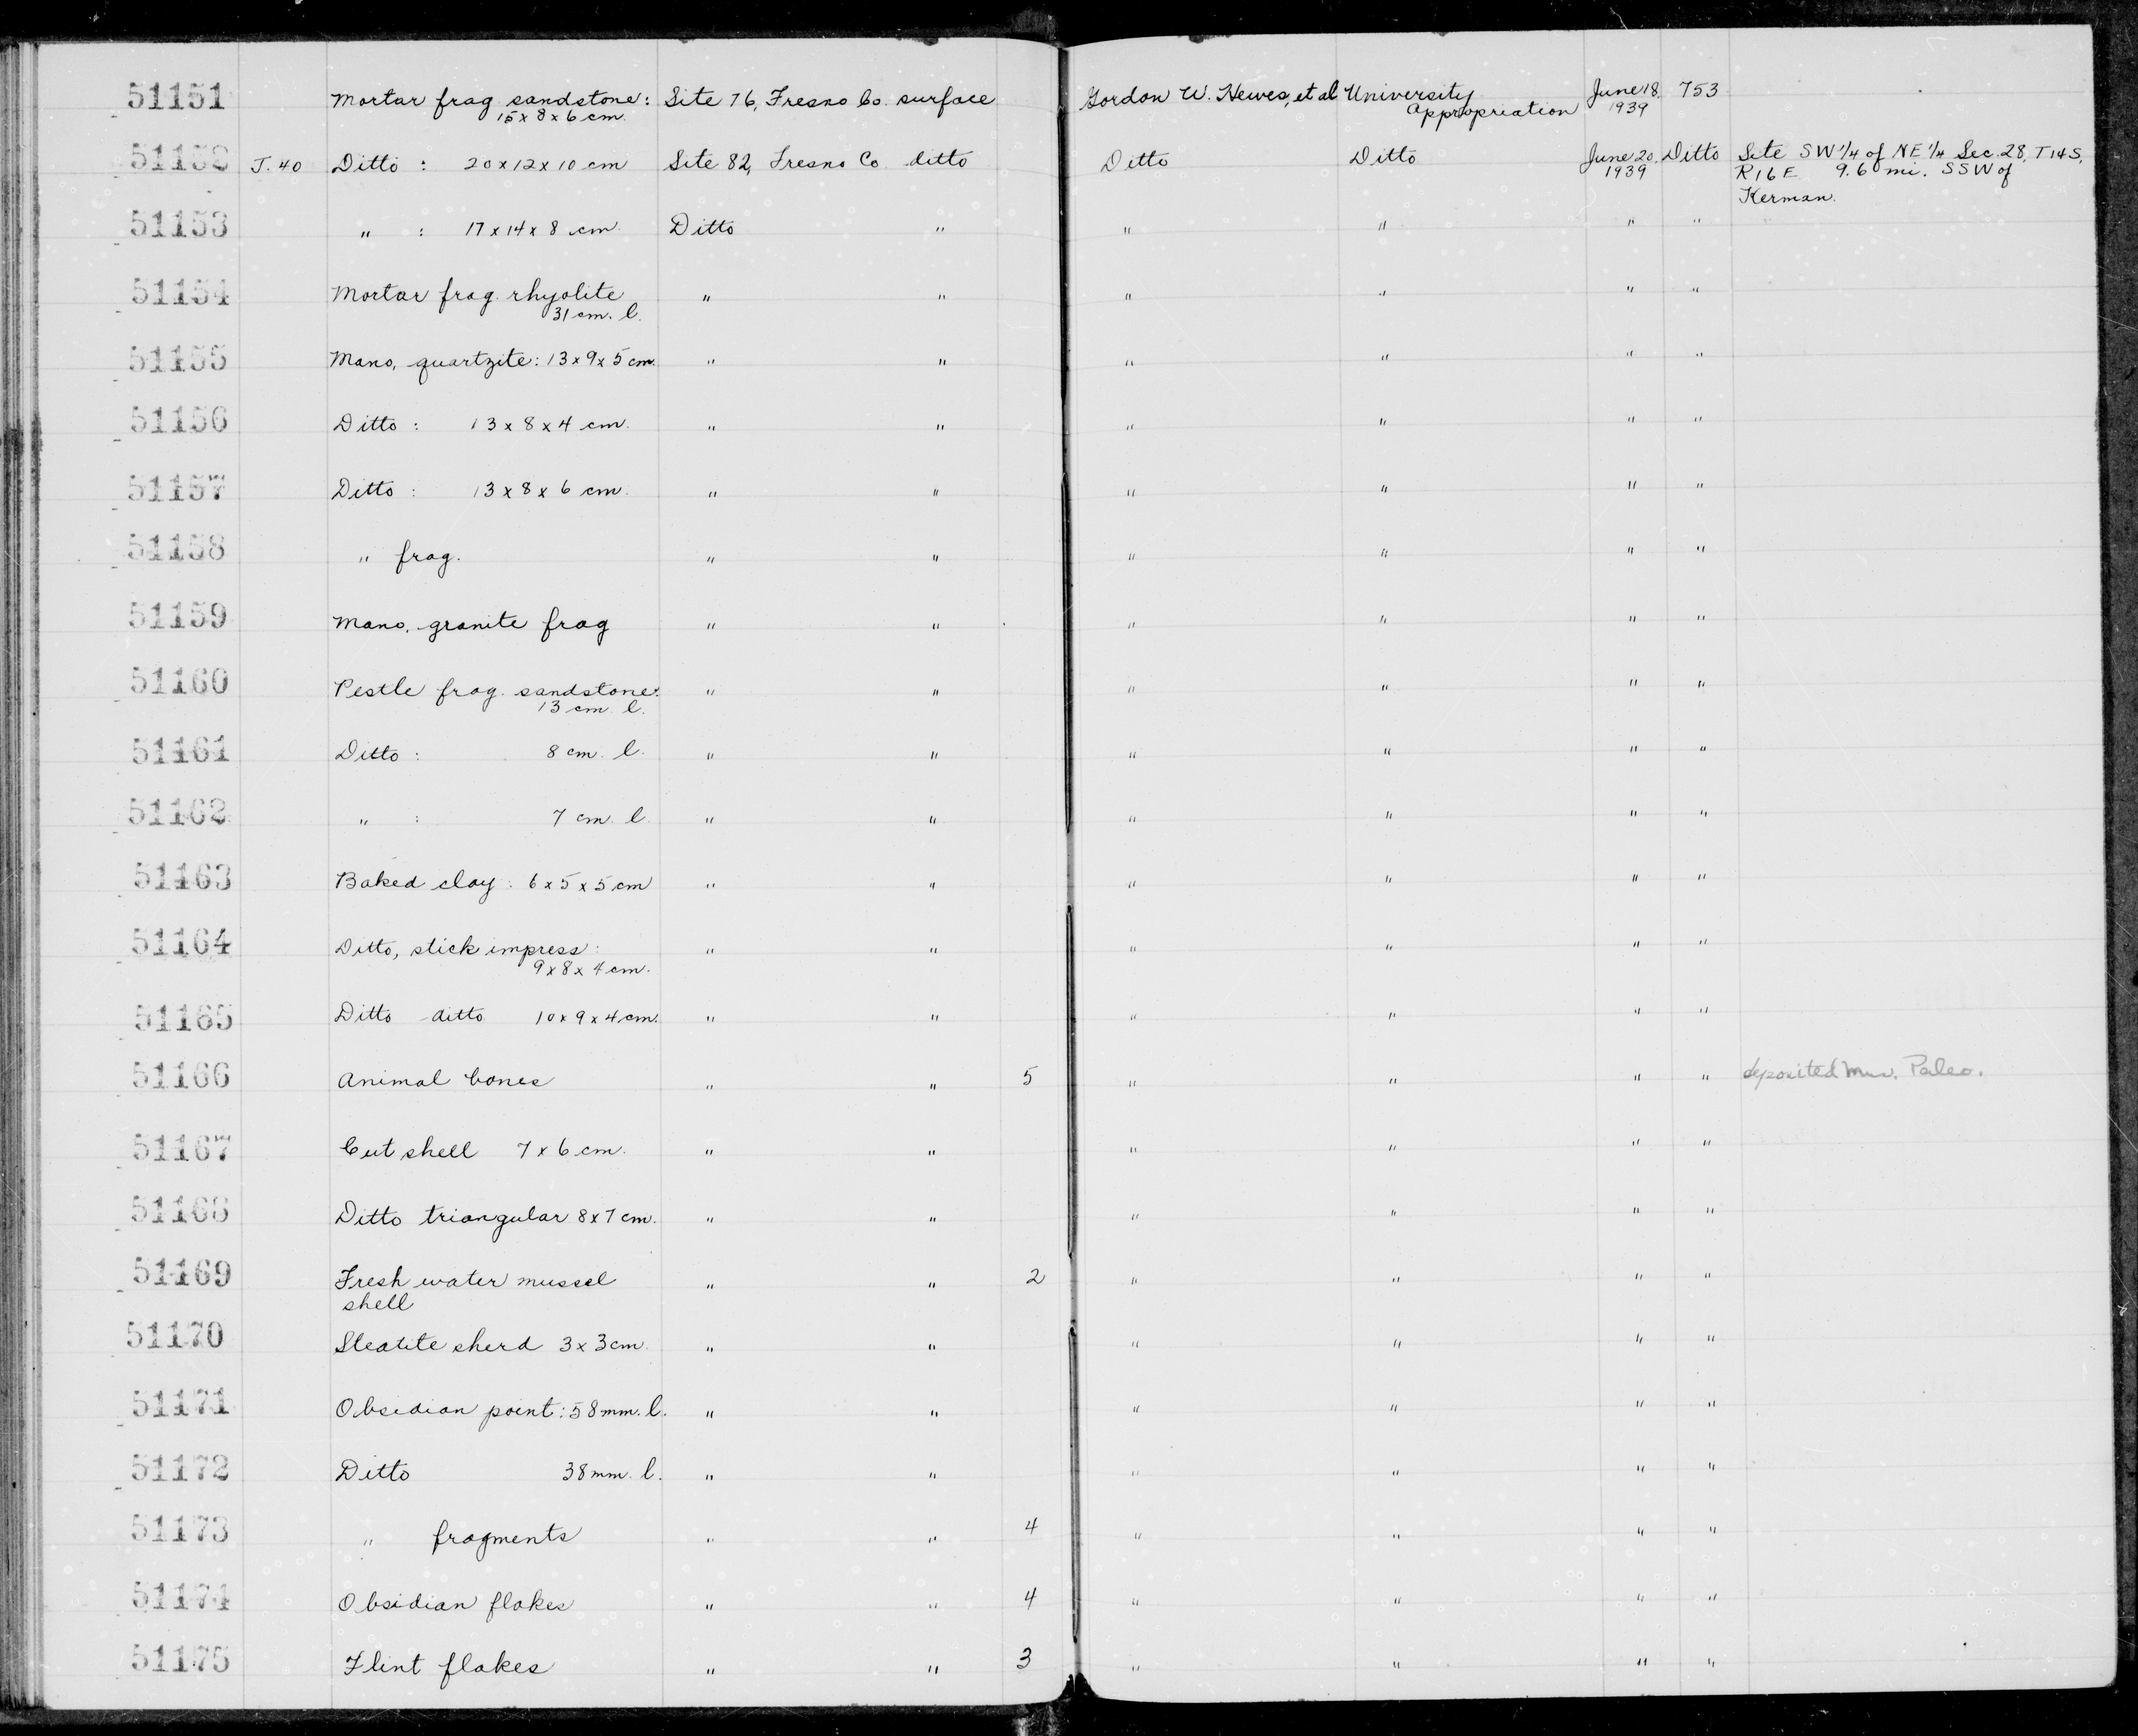 51151 Mortar frag sandstone: Site 76, Fresno Co. surface Gordon W. Hewes, et al University June 18, 753
15 x 8 x 6 cm. Appropriation 1939
51152 J. 40 Ditto : 20 x 12 x 10 cm Site 82, Fresno Co ditto Ditto Ditto June 20, Ditto Site SW 1/4 of NE 1/4 Sec. 28, T14S,
1939 R16E 9.6 mi. SSW of
Kerman.
51153 " : 17 x 14 x 8 cm. Ditto " " " " "
51154 Mortar frag. rhyolite " " " " " "
31 cm. l.
51155 Mano, quartzite: 13 x 9 x 5 cm. " " " " " "
51156 Ditto : 13 x 8 x 4 cm. " " " " " "
51157 Ditto : 13 x 8 x 6 cm. " " " " " "
51158 " frag. " " " " " "
51159 Mano, granite frag " " " " " "
51160 Pestle frag. sandstone: " " " " " "
13 cm. l.
51161 Ditto : 8 cm. l. " " " " " "
51162 " : 7 cm. l. " " " " " "
51163 Baked clay : 6 x 5 x 5 cm " " " " " "
51164 Ditto, stick impress : " " " " " "
9 x 8 x 4 cm.
51165 Ditto ditto 10 x 9 x 4 cm. " " " " " "
51166 Animal bones " " 5 " " " " deposited Mus. Paleo.
51167 Cut shell 7 x 6 cm. " " " " " "
51168 Ditto triangular 8 x 7 cm. " " " " " "
51169 Fresh water mussel " " 2 " " " "
shell
51170 Steatite sherd 3 x 3 cm. " " " " " "
51171 Obsidian point : 58 mm. l. " " " " " "
51172 Ditto 38 mm. l. " " " " " "
51173 " fragments " " 4 " " " "
51174 Obsidian flakes " " 4 " " " "
51175 Flint flakes " " 3 " " " "